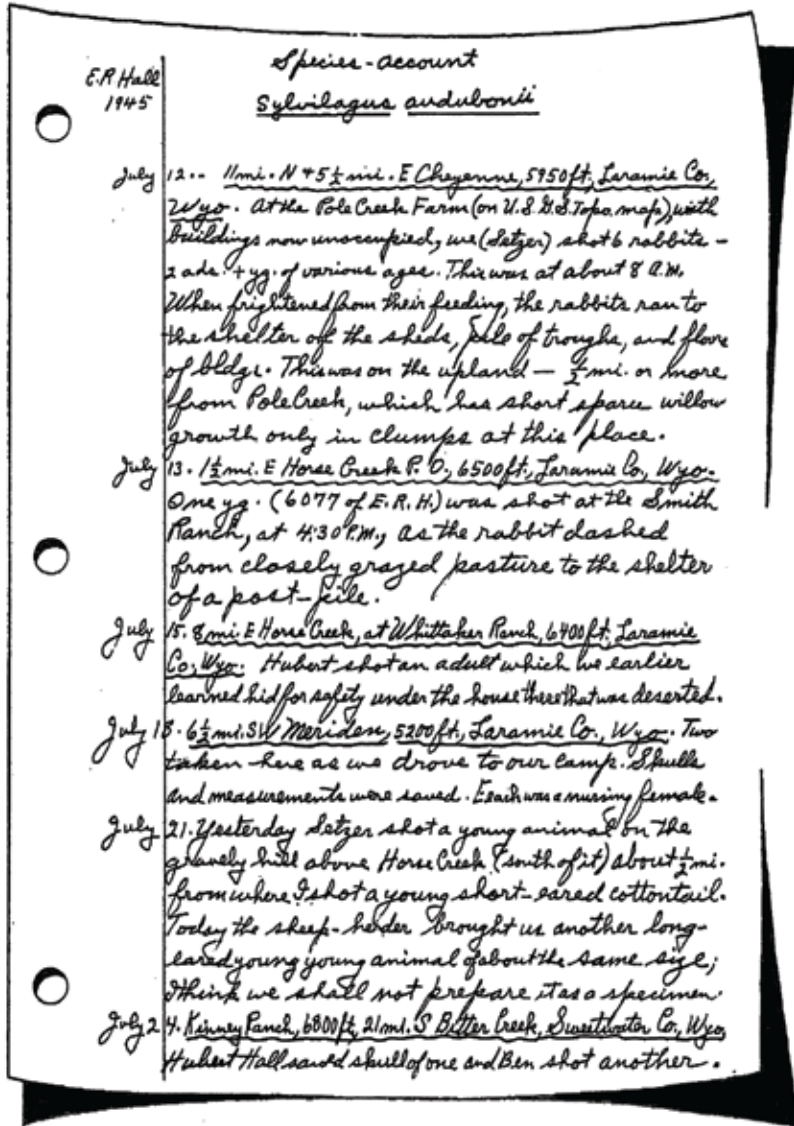 Species-account
E.R Hall
1945
Sylvilagus audubonii
July 12.- 11mi. N + 5½ mi. E Cheyenne, 5950ft, Laramie Co.,
Wyo. At the Pole Creek Farm (on U.S.G.S. Topo. map), with
buildings now unoccupied, we (Setzer) shot 6 rabbits -
2 ads. + yg. of various ages. This was at about 8 A.M.
When frightened from their feeding, the rabbits ran to
the shelter of the sheds, pile of troughs, and floors
of bldgs. This was on the upland — ½ mi. or more
from Pole Creek, which has short sparce willow
growth only in clumps at this place.
July 13. 1½ mi. E Horse Creek P. O., 6500ft., Laramie Co., Wyo.
One yg. (6077 of E.R.H.) was shot at the Smith
Ranch, at 4:30 P.M., as the rabbit dashed
from closely grazed pasture to the shelter
of a post-pile.
July 15. 8 mi. E Horse Creek, at Whittaker Ranch, 6400ft, Laramie
Co., Wyo. Hubert shot an adult which we earlier
learned hid for safety under the house there that was deserted.
July 18. 6½ mi. SW Meriden, 5200ft, Laramie Co., Wyo. Two
taken here as we drove to our camp. Skulls
and measurements were saved. Eeach was a nursing female.
July 21. Yesterday Setzer shot a young animal on the
gravely hill above Horse Creek (south of it) about ½ mi.
from where I shot a young short-eared cottontail.
Today the sheep-herder brought us another long-
eared young young animal of about the same size;
I think we shall not prepare it as a specimen.
July 24. Kinney Ranch, 6800ft, 21 mi. S Bitter Creek, Sweetwater Co., Wyo,
Hubert Hall saved skull of one and Ben shot another.